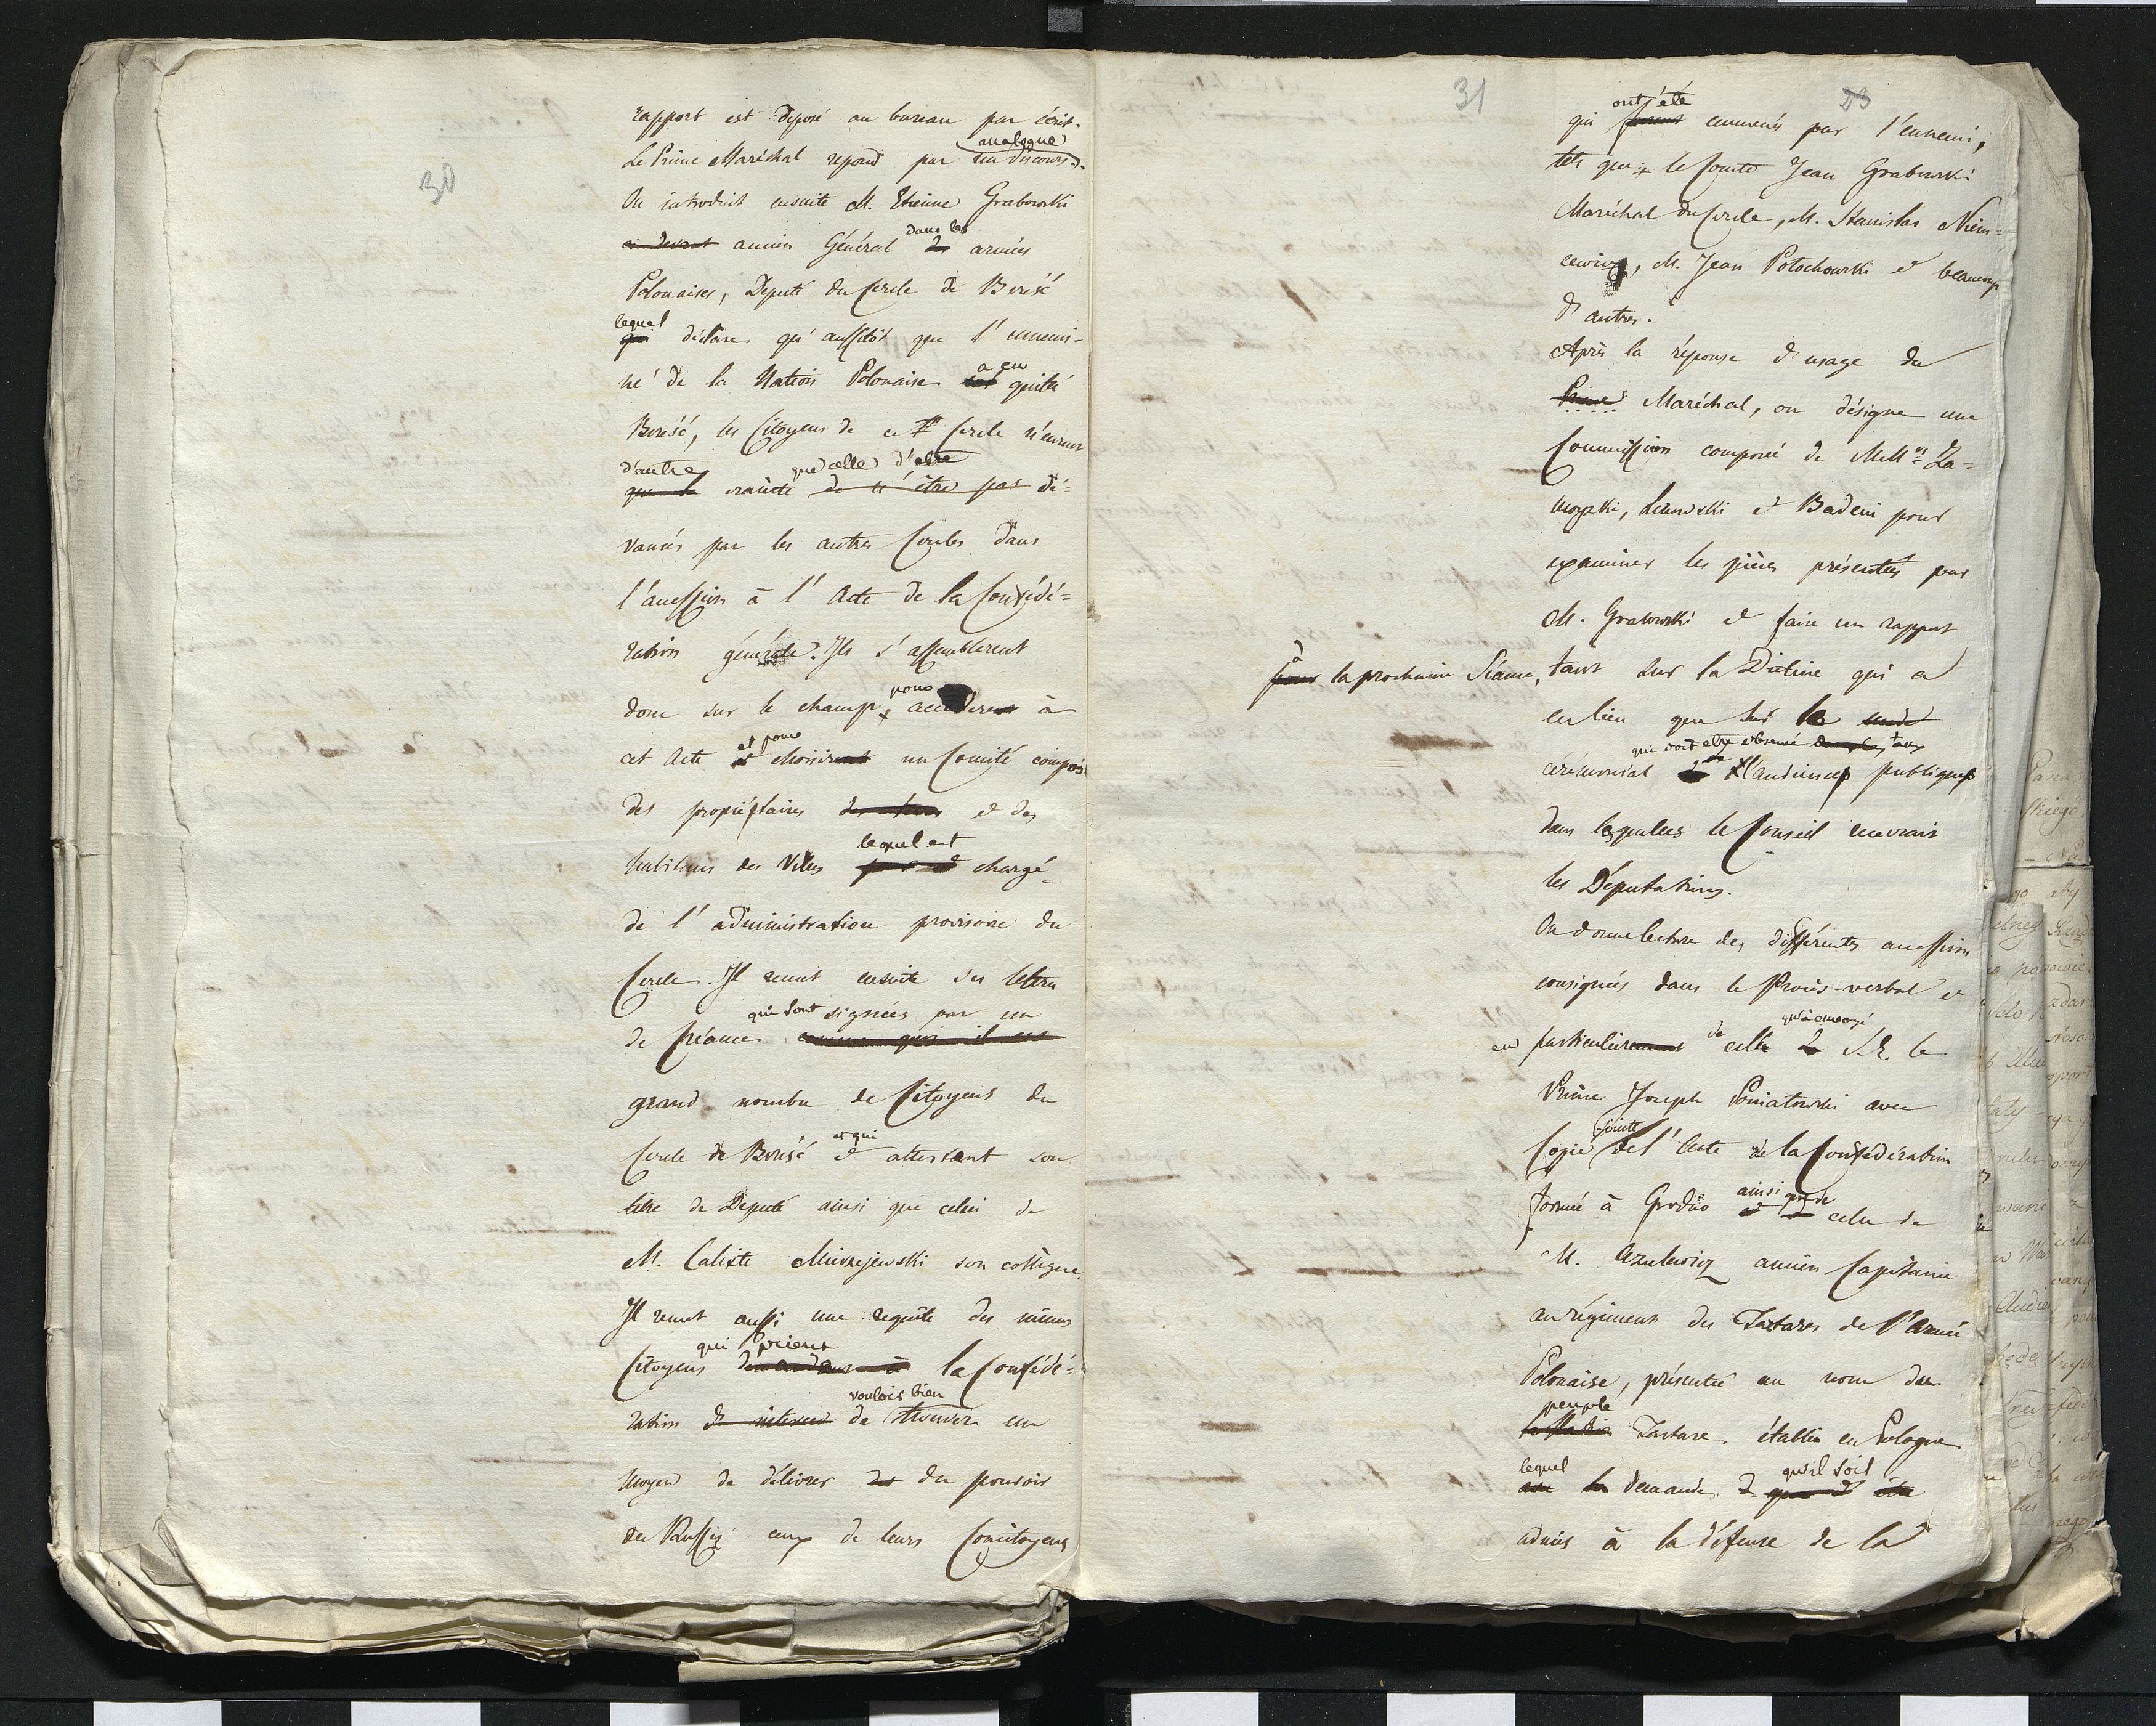 30
rapport est deposé au bureau par écrit.
analogue
Le Prince Maréchal repond par un discours.
On introduit ensuite M. Etienne Grabowski
dans les
ci devant ancien Général des armées
Polonaises, Deputé du Cercle de Brześć
lequel
qui déclare qu'aussitôt que l'ennemi-
a eu
né de la Nation Polonaise quitté
Brześć, les Citoyens de ce Cercle n'eurent
d'autre que celle d'etre
que la crainte de n'être pas de=
vancés par les autres Cercles dans
l'accession à l'Acte de la Confédé=
ration générale. Ils s'assemblerent
pour
donc sur le champ, accederent à
et pour
cet Acte et choisirent un Comité composé
des propriétaires et des
lequel est
habitans des Villes chargé
de l'administration provisoire du
Cercle. Il remet ensuite ses lettres
qui sont signées par un
de Créance
grand nombre de Citoyens du
et qui
Cercle de Brześć et attestent son
titre de Deputé ainsi que celui de
M. Calixte Mierzejewski son collègue.
Il remet aussi une requête des mêmes
qui prient
Citoyens demandant à la Confédé=
vouloir bien
ration de trouver un
moyen de délivrer des du pouvoir
des Russes ceux de leurs Concitoyens
31
23
ont été
qui furent emmenés par l'ennemi,
tels que le Comte Jean Grabowski
Maréchal du Cercle, M. Stanislas Niem=
cewicz, M. Jean Potochowski et beaucoup
d'autres.
Après la réponse d'usage du
Prince Maréchal, on désigne une
Commission composée de MM. Za=
moyski, Linowski et Badeni pour
examiner les pièces présentées par
M. Grabowski et faire un rapport
à
pour la prochaine Séance, tant sur la Diétine qui a
eu lieu que sur le
qui doit etre observé dans les aux
cérémonial audiences publiques
dans lesquelles le Conseil recevrait
les Députations.
On donne lecture des différentes accessions
consignées dans le Procès-verbal et
de qu'a envoyé
en particulier celle de S.E. le
Prince Joseph Poniatowski avec
jointe
Copie de l'Acte de la Confédération
ainsi que de
formée à Grodno et de celle de
M. Azulewicz ancien Capitaine
au régiment des Tartares de l'Armée
Polonaise, présentée au nom du
peuple
la Nation Tartare établie en Pologne
lequel qu'il soit
demande
admis à la défense de la